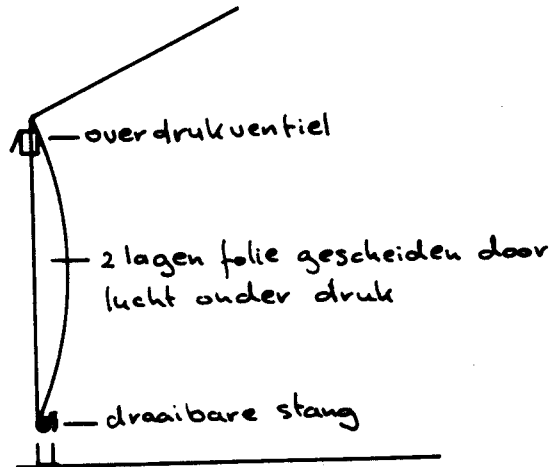 overdrukventiel
2 lagen folie gescheiden door
lucht onder druk
draaibare stang